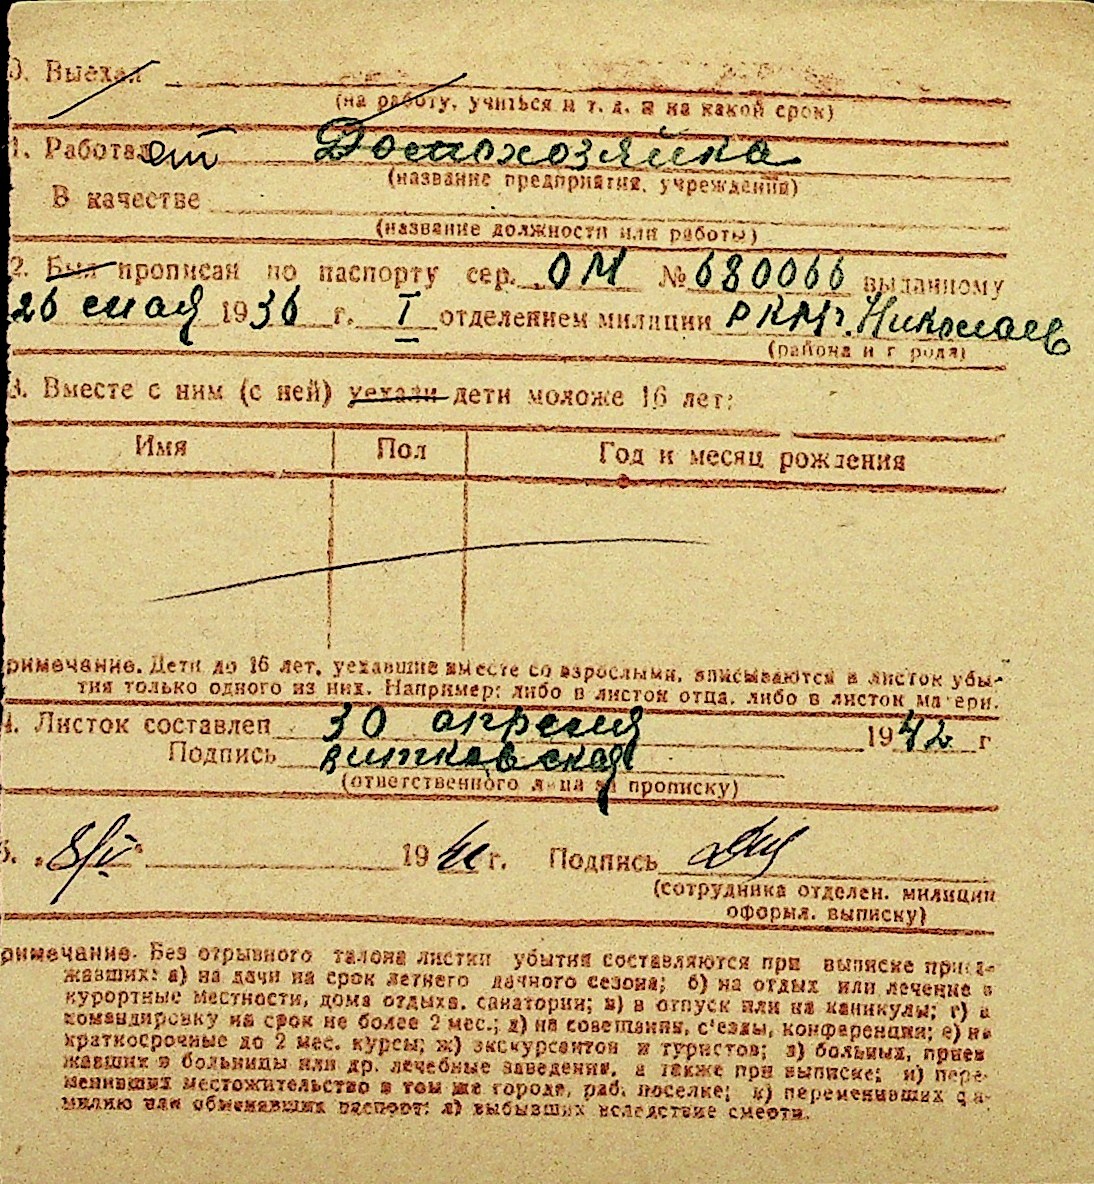 0. Выехал
(на работу, учиться и т. д. и на какой срок)
1. Работает Домохозяйка
(название предприятия, учреждения)
В качестве
(название должности или работы)
2. Был прописан по паспорту сер. ОМ № 680066 выданному
26 мая 1936 г. I отделением милиции РКМ г. Николаев
(района и города)
3. Вместе с ним (с ней) уехали дети моложе 16 лет:
Имя Пол Год и месяц рождения
римечание. Дети до 16 лет, уехавшие вместе со взрослыми, вписываются в листок убы-
тия только одного из них. Например: либо в листок отца, либо в листок матери.
4. Листок составлен 30 апреля 1942 г
Подпись Витковская
(ответственного лица за прописку)
5. „8/V“ 19 г. Подпись
(сотрудника отделен. милиции
оформл. выписку)
римечание. Без отрывного талона листки убытия составляются при выписке приез-
жавших: а) на дачи на срок летнего дачного сезона; б) на отдых или лечение в
курортные местности, дома отдыха, санатории; в) в отпуск или на каникулы; г) в
командировку на срок не более 2 мес.; д) на совещания, с'езды, конференции; е) на
краткосрочные до 2 мес. курсы; ж) экскурсантов и туристов; з) больных, приез
жавших в больницы или др. лечебные заведения, а также при выписке; и) пере-
менивших местожительство в том же городе, раб. поселке; к) переменивших фа-
милию или обменявших паспорт; л) выбывших вследствие смерти.